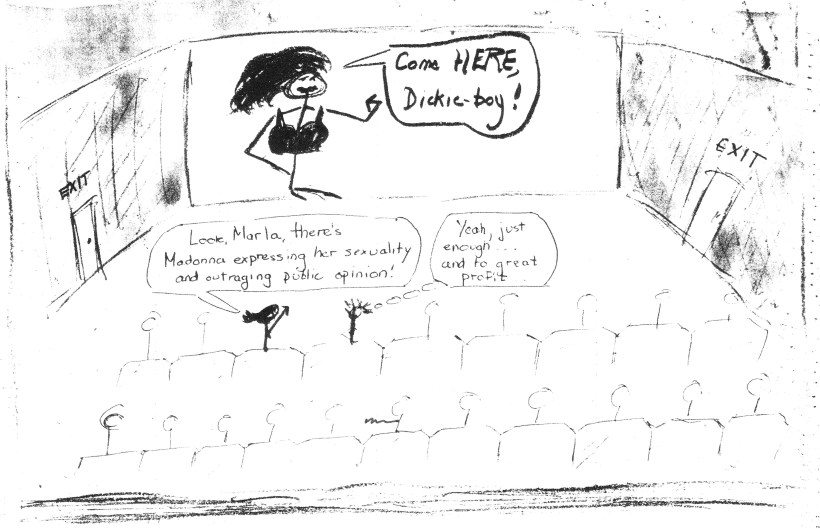 Come HERE,
Dickie-boy!
EXIT
EXIT
Look, Marla, there's
Madonna expressing her sexuality
and outraging public opinion!
Yeah, just
enough...
and to great
profit